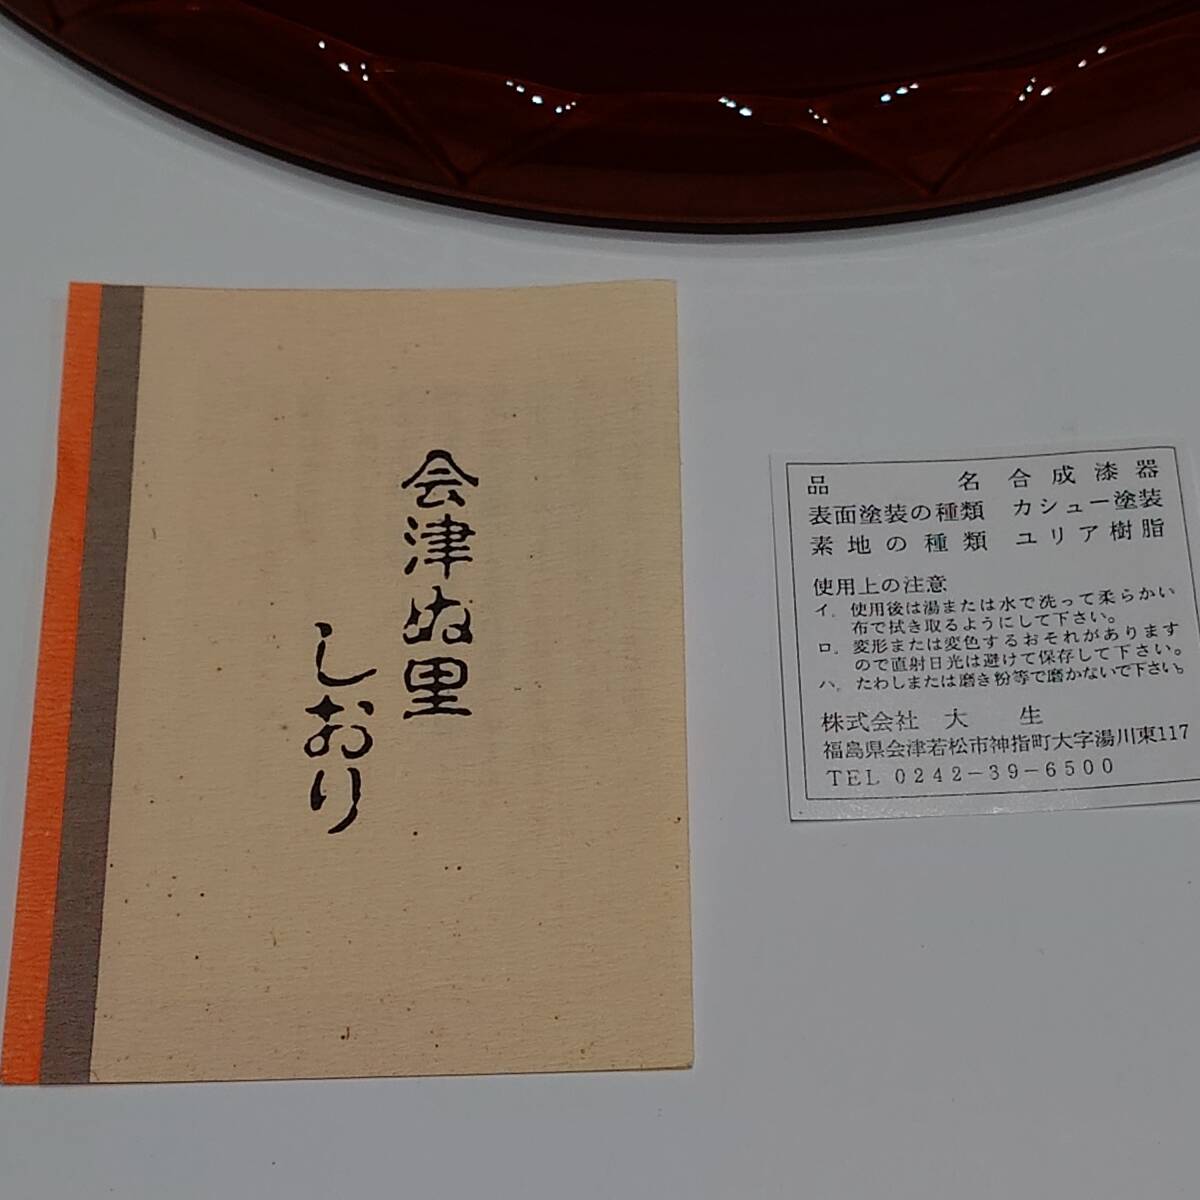 会津ぬ里
しおり
品名 合成漆器
表面塗装の種類 カシュー塗装
素地の種類 ユリア樹脂
使用上の注意
イ。使用後は湯または水で洗って柔らかい
布で拭き取るようにして下さい。
ロ。変形または変色するおそれがあります
ので直射日光は避けて保存して下さい。
ハ。たわしまたは磨き粉等で磨かないで下さい。
株式会社 大生
福島県会津若松市神指町大字湯川東117
TEL 0242-39-6500